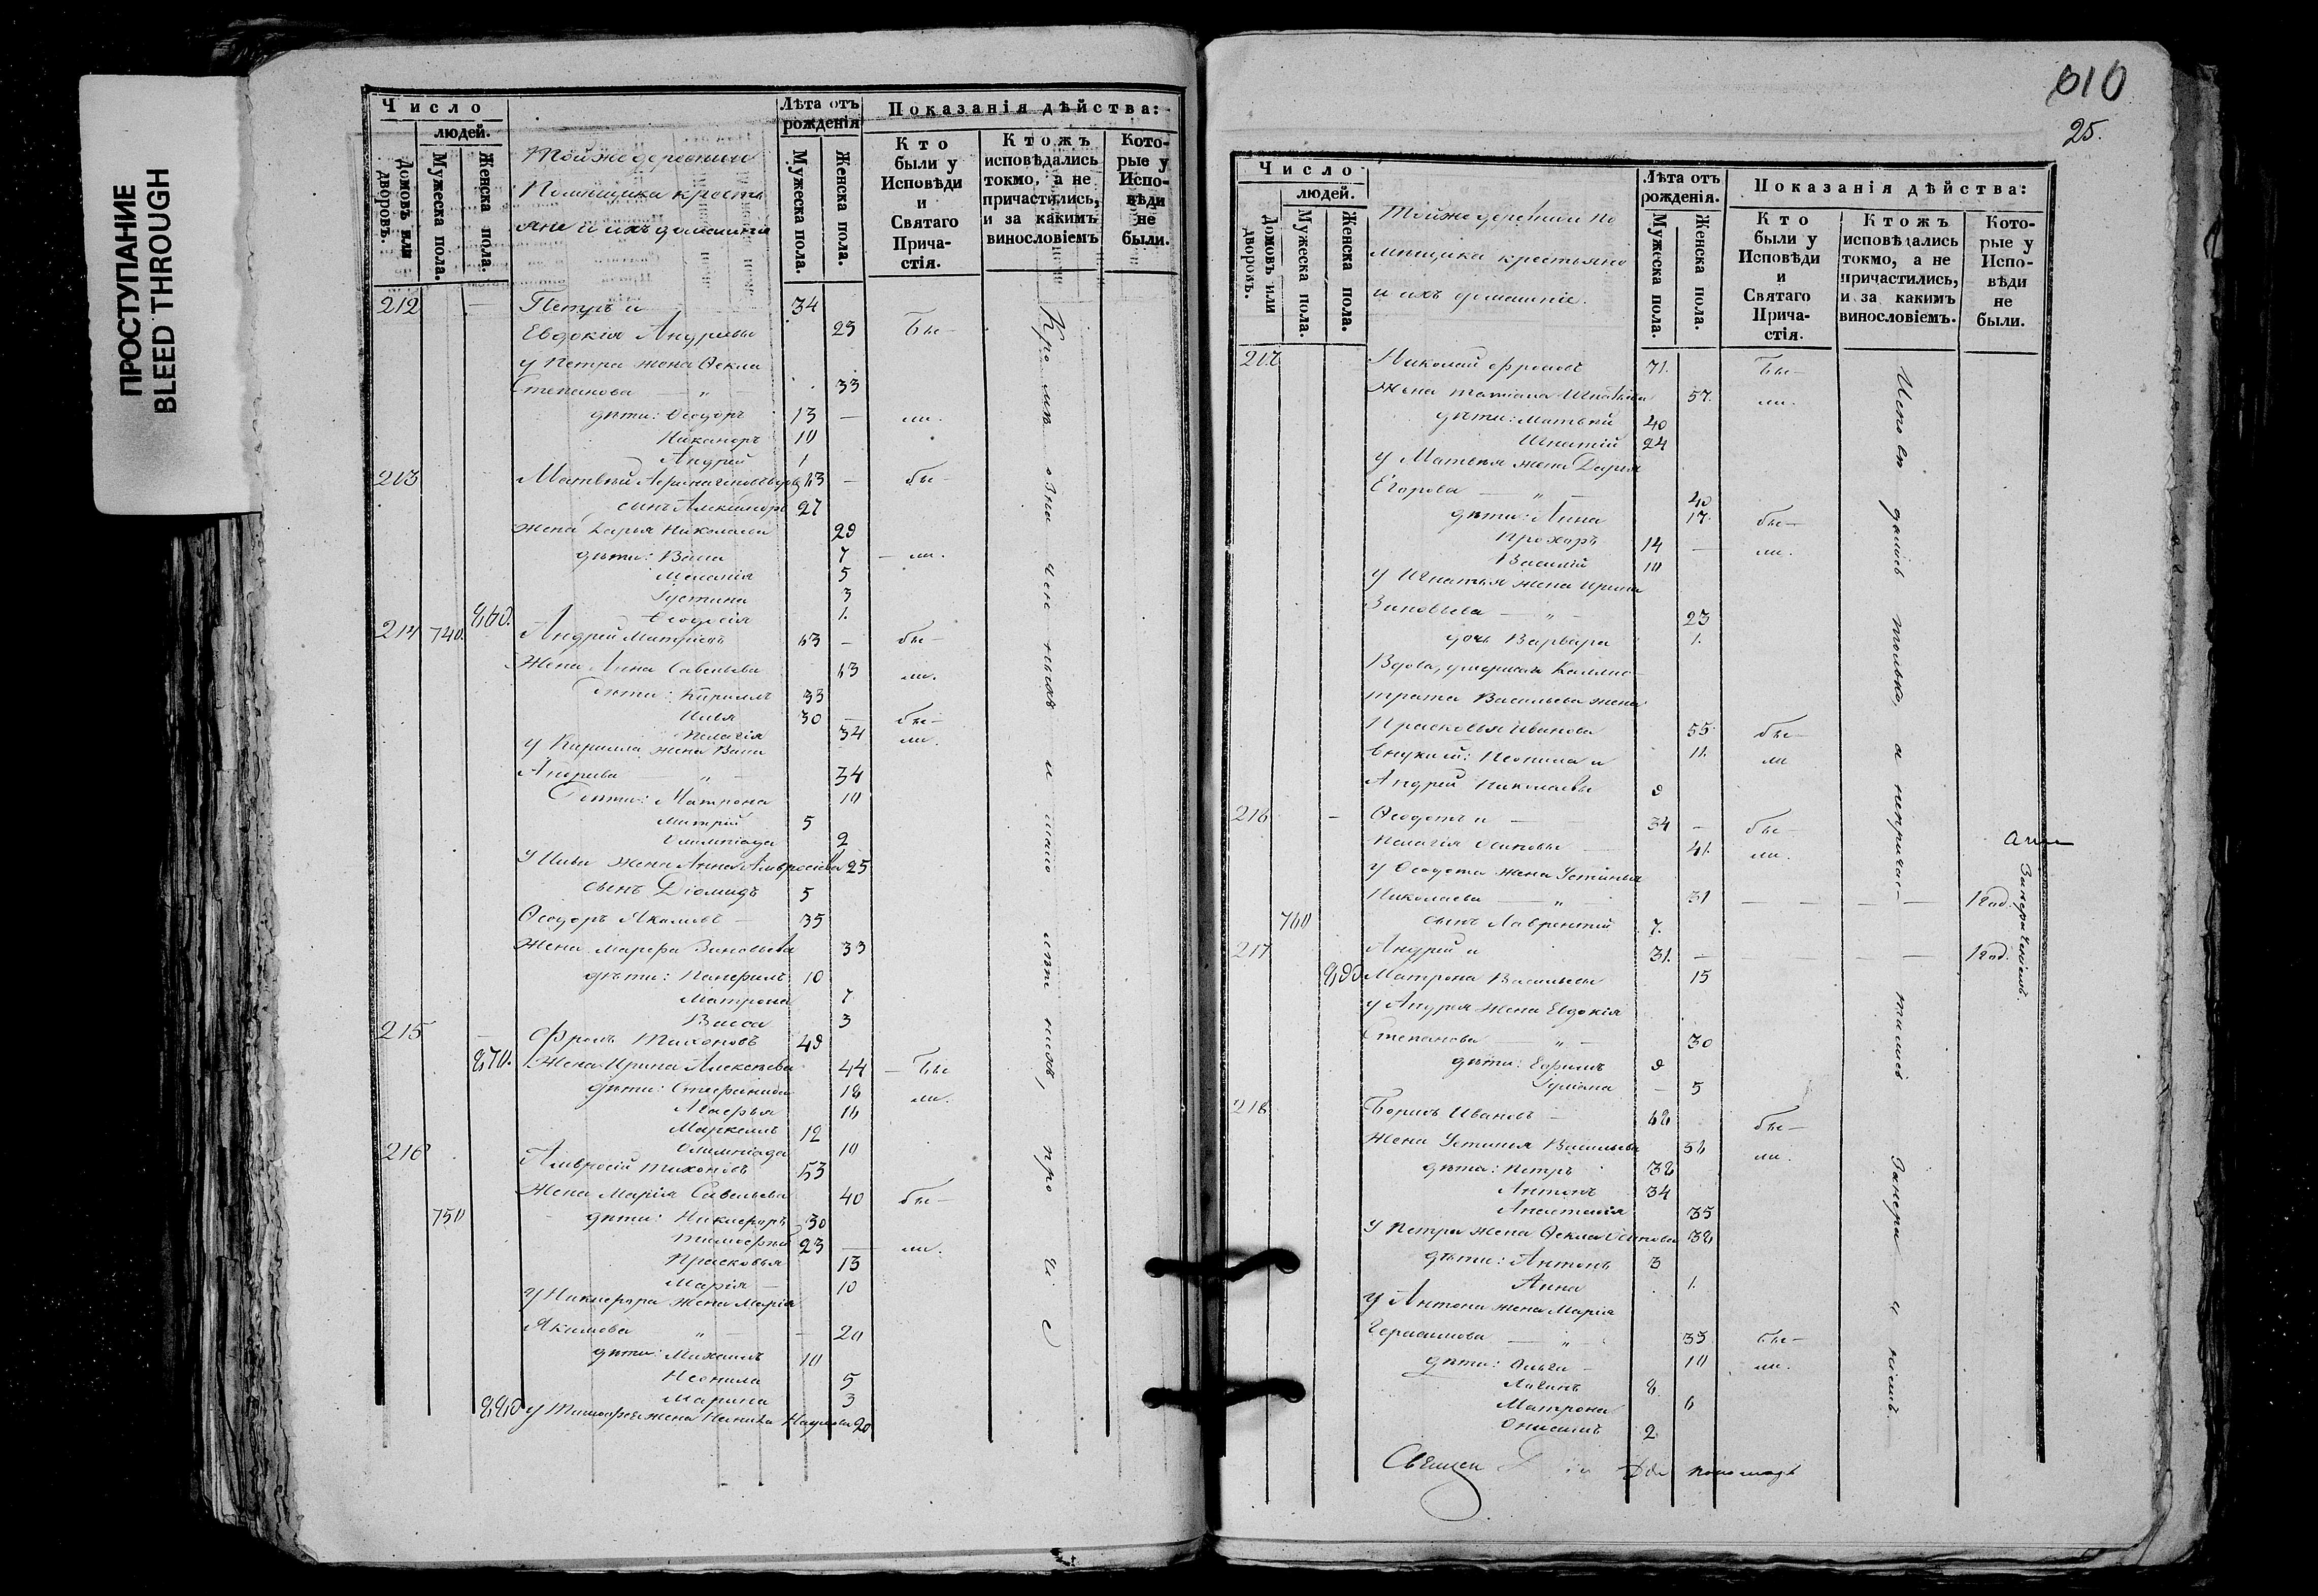 ПРОСТУПАНИЕ
BLEED THROUGH
Число
людей.
Домовъ или дворовъ.
Мужеска пола.
Женска пола.
Тойже деревни
Помищика крестья
яне и ихъ домашнія
Лѣта отъ рожденія
Мужеска пола.
Женска пола.
Показанія дѣйства:
Кто были у Исповѣди и Святаго Прича-стія.
Ктожъ исповѣдались токмо, а не причастились, и за какимъ винословіемъ
Кото-рые у Испо-вѣди не были.
212 — Петръ и 34
Евдокія Андреевы 29 бы-
у Петра жена Ѳекла
Степанова — „ — 33
дѣти: Ѳеодоръ 13 — ли.
Никаноръ 10
Андрей 1
213 Матвѣй 63 — бы-
сынъ Александръ 27
жена Дарья Николаева 29
дѣти: Васса 7 — ли.
Меланія 5
Іустина 3
860. Ѳеодосія 1.
214 740. Андрей 63 — бы-
Жена Анна Савельева 63 ли.
Дѣти: Кириллъ 33
Илья 30 — бы-
Пелагія 34 ли.
у Кирилла жена Васса
Андреева — „ — 34
Дѣти: Матрона 10
Митрій 5
Олимпіада 2
У Ильи жена Анна Амвросіева 25
сынъ Діомидъ 5
Ѳеодоръ Якимовъ — 35
Жена Марфа Зиновьева 33
дѣти: Панфилъ 10
Матрона 7
Васса 3
215 — Фролъ Тихоновъ 49
870. Жена Ирина Алексѣева 44 — бы
дѣти: Стефанида 18 ли.
16
Маркеллъ 12
Олимпіада 10
216 Амвросій Тихоновъ 53
Жена Марія Савельева 40 бы-
750 дѣти: Никифоръ 30
Тимофей 23 — ли.
Прасковья 13
Марія — 10
У Никифора жена Марія
Якимова „ — — 20
дѣти: Михаилъ 10
Неонила 5
Марина 3
880 у Тимофея жена Наумова 20
Кромѣ означенныхъ и мало лѣтнихъ, прочіе
010
25.
Число
людей.
Домовъ или дворовъ.
Мужеска пола.
Женска пола.
Тойже деревни по
мищика крестьяне
и ихъ домашніе.
Лѣта отъ рожденія.
Мужеска пола.
Женска пола.
Показанія дѣйства:
Кто были у Исповѣди и Святаго Прича-стія.
Ктожъ исповѣдались токмо, а не причастились, и за какимъ винословіемъ.
Кото-рые у Испо-вѣди не были.
217 Николай Фроловъ 71. бы-
Жена Татіана Игнатьева 57. ли.
дѣти: Матвѣй 40
Игнатій 24
у Матвѣя жена Дарья
Егорова — „ — 40
дѣти: Анна 17. бы-
Прохоръ 14 — ли.
Василій 10
у Игнатья жена Ирина
Зиновьева — „ — 23
дочь Варвара 1.
Вдова, умершаго Калли-
трата Васильева жена
Прасковья Иванова 55 бы-
внуки ей: Неонила и 11. ли
Андрей Николаевы 9
216 — Ѳеодотъ и — 34 — бы-
Пелагія Осиповы — 41. ли.
у Ѳеодота жена Устинья
Николаева — „ — 31 — — — — 1 год.
760 сынъ Лаврентій 7.
217 Андрей и 31. — — — 1 год.
890 Матрона Васильевы 15
у Андрея жена Евдокія
Степанова — „ — 30
дѣти: Ефимъ 9
Іуліана — 5
218 Борисъ Ивановъ — 68 бы-
Жена Устинья Васильева 56 ли.
дѣти: Петръ 38
Антонъ 34
Анастасія 35
У Петра жена Ѳекла Осипова 38
дѣти: Антонъ 3
Анна 1.
У Антона жена Марія
Герасимова — „ — 33 бы-
дѣти: Ольга — 10 ли.
Логинъ 8.
Матрона 6
Онисимъ 2
Исповѣдались только, а непричас- тились